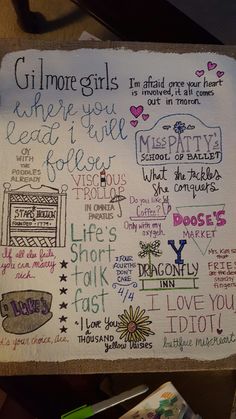 Gilmore girls
I'm afraid once your heart
is involved, it all comes
out in moron.
where you
lead i will
follow
MISS PATTY'S
SCHOOL OF BALLET
OY
WITH THE
POODLES
ALREADY
What she tackles
She conquers
VISCIOUS
TROLLOP
IN OMNIA
PARATUS
Do you like
Coffee?
Only with my
oxygen.
STARS HOLLOW
FOUNDED 1779
DOOSE'S
MARKET
Life's
Short
talk
fast
If all else fails,
you can marry
rich.
I FOUR
FOURTHS
DON'T
CARE
4/4
DRAGONFLY
INN
FRIES
Luke's
I LOVE YOU
IDIOT!
I Love You
a THOUSAND
Yellow Daisies
buttface miscreant